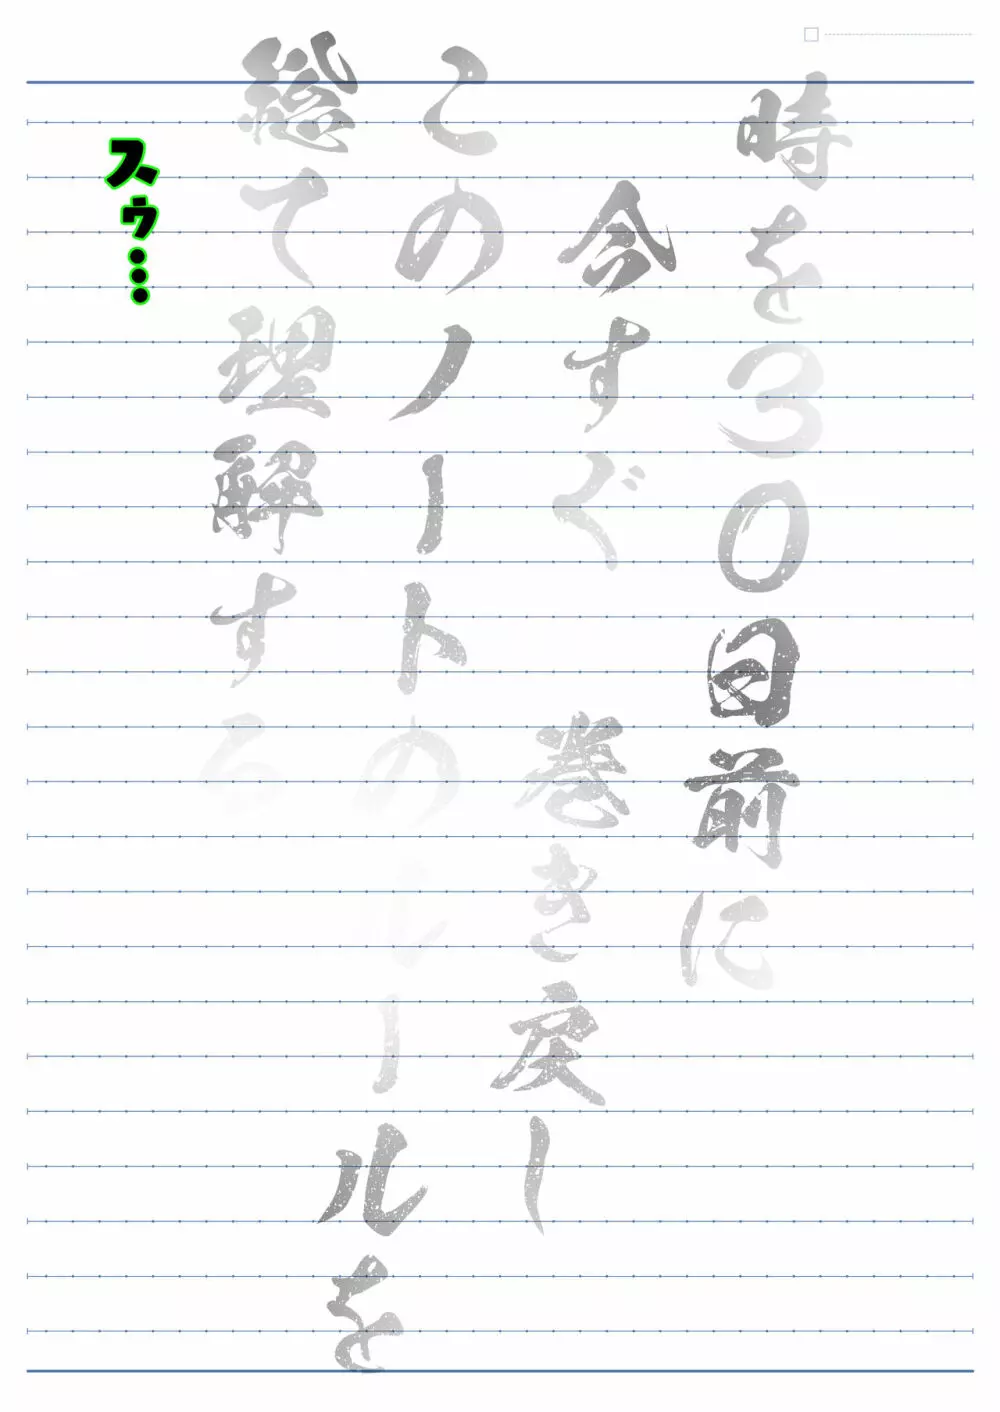 時を30日前に
今すぐ巻き戻し
このノートのルールを
総て理解する
スゥ…